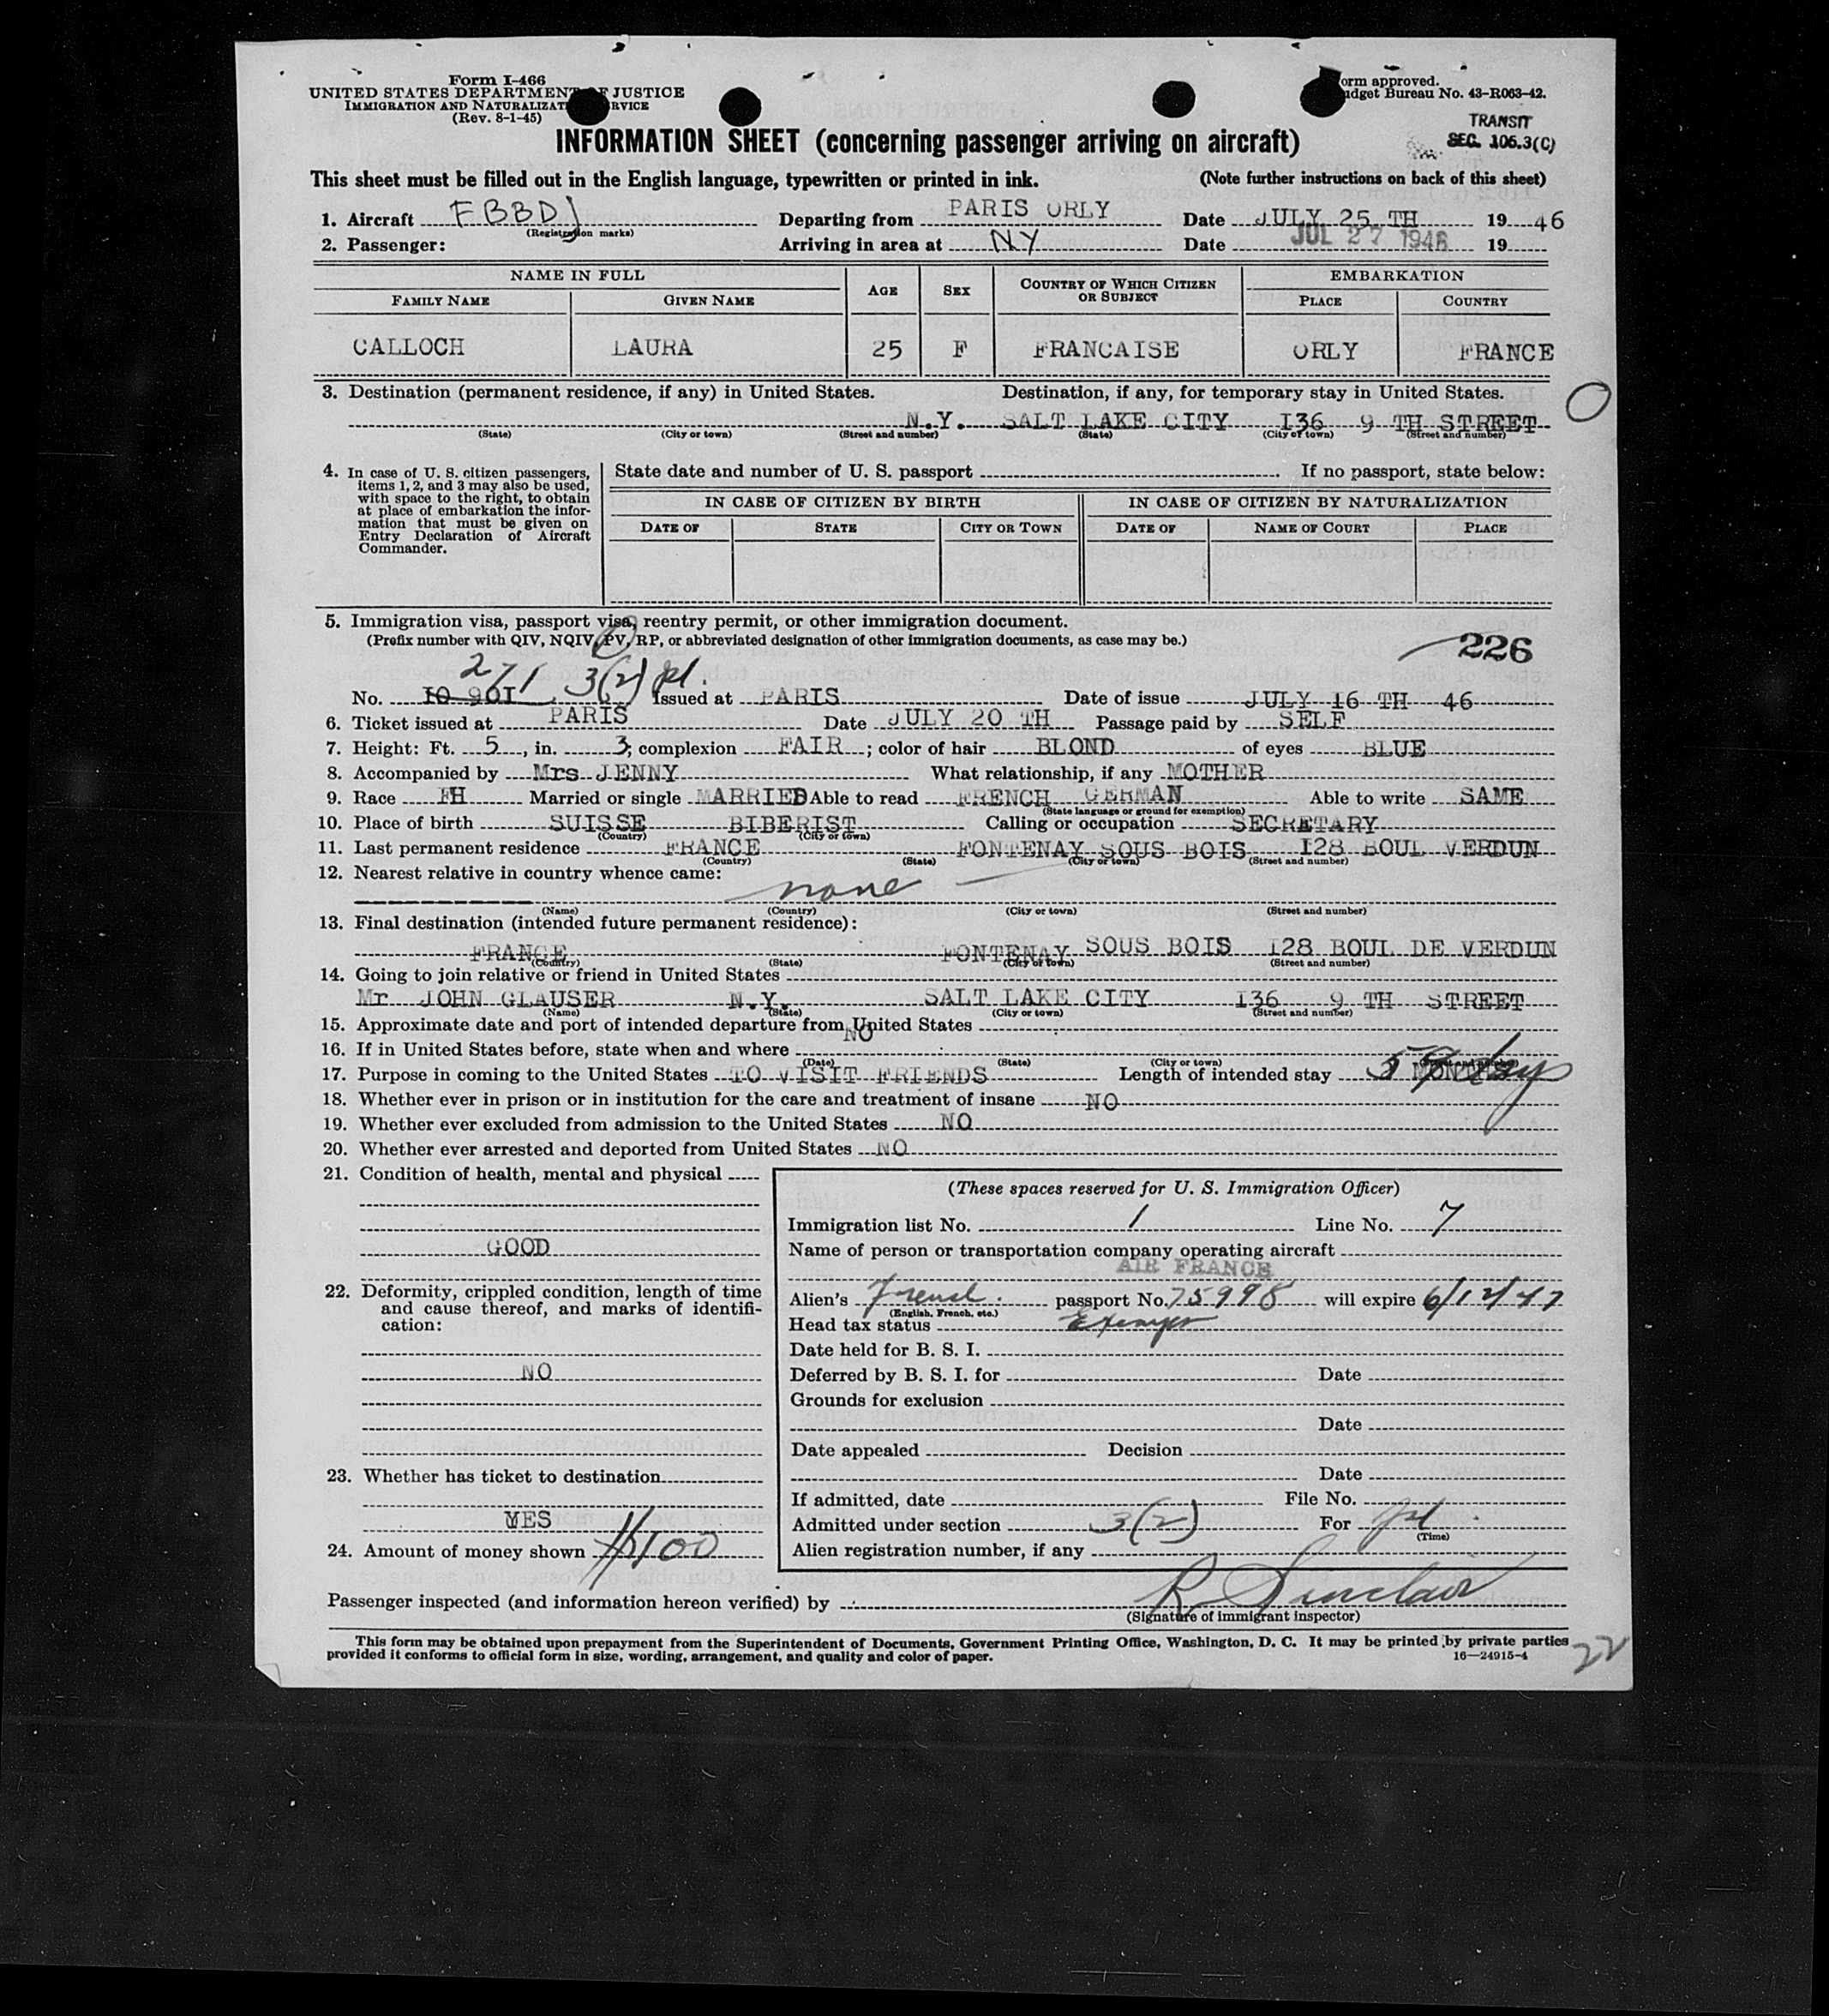 Form I-466
UNITED STATES DEPARTMENT OF JUSTICE
IMMIGRATION AND NATURALIZAT RVICE
(Rev. 8-1-45)
orm approved.
udget Bureau No. 43-R063-42.
TRANSIT
SEC. 106.3(C)
INFORMATION SHEET (concerning passenger arriving on aircraft)
This sheet must be filled out in the English language, typewritten or printed in ink. (Note further instructions on back of this sheet)
1. Aircraft FBBDJ Departing from PARIS ORLY Date JULY 25 TH 19 46
(Registration marks)
2. Passenger: Arriving in area at NY Date JUL 27 1946 19
NAME IN FULL AGE SEX COUNTRY OF WHICH CITIZEN OR SUBJECT EMBARKATION
FAMILY NAME GIVEN NAME PLACE COUNTRY
CALLOCH LAURA 25 F FRANCAISE ORLY FRANCE
3. Destination (permanent residence, if any) in United States. Destination, if any, for temporary stay in United States.
N.Y. SALT LAKE CITY I36 9 TH STREET
(State) (City or town) (Street and number) (State) (City or town) (Street and number)
4. In case of U. S. citizen passengers, items 1, 2, and 3 may also be used, with space to the right, to obtain at place of embarkation the information that must be given on Entry Declaration of Aircraft Commander.
State date and number of U. S. passport If no passport, state below:
IN CASE OF CITIZEN BY BIRTH IN CASE OF CITIZEN BY NATURALIZATION
DATE OF STATE CITY OR TOWN DATE OF NAME OF COURT PLACE
5. Immigration visa, passport visa, reentry permit, or other immigration document.
(Prefix number with QIV, NQIV, PV, RP, or abbreviated designation of other immigration documents, as case may be.)
226
271 3(2)
No. I0 90I Issued at PARIS Date of issue JULY 16 TH 46
6. Ticket issued at PARIS Date JULY 20 TH Passage paid by SELF
7. Height: Ft. 5, in. 3; complexion FAIR; color of hair BLOND of eyes BLUE
8. Accompanied by Mrs JENNY What relationship, if any MOTHER
9. Race FH Married or single MARRIED Able to read FRENCH GERMAN Able to write SAME
(State language or ground for exemption)
10. Place of birth SUISSE BIBERIST Calling or occupation SECRETARY
(Country) (City or town)
11. Last permanent residence FRANCE FONTENAY SOUS BOIS I28 BOUL VERDUN
(Country) (State) (City or town) (Street and number)
12. Nearest relative in country whence came:
none
(Name) (Country) (City or town) (Street and number)
13. Final destination (intended future permanent residence):
FRANCE FONTENAY SOUS BOIS I28 BOUL DE VERDUN
(Country) (State) (City or town) (Street and number)
14. Going to join relative or friend in United States
Mr JOHN GLAUSER N.Y. SALT LAKE CITY I36 9 TH STREET
(Name) (State) (City or town) (Street and number)
15. Approximate date and port of intended departure from United States
NO
16. If in United States before, state when and where
(Date) (State) (City or town) (Street and number)
17. Purpose in coming to the United States TO VISIT FRIENDS Length of intended stay 59 days
18. Whether ever in prison or in institution for the care and treatment of insane NO
19. Whether ever excluded from admission to the United States NO
20. Whether ever arrested and deported from United States NO
21. Condition of health, mental and physical
GOOD
22. Deformity, crippled condition, length of time and cause thereof, and marks of identification:
NO
23. Whether has ticket to destination
YES
24. Amount of money shown $100
(These spaces reserved for U. S. Immigration Officer)
Immigration list No. 1 Line No. 7
Name of person or transportation company operating aircraft
AIR FRANCE
Alien's French passport No. 75998 will expire 6/12/47
(English, French, etc.)
Head tax status Exempt
Date held for B. S. I.
Deferred by B. S. I. for Date
Grounds for exclusion
Date
Date appealed Decision
Date
If admitted, date File No.
Admitted under section 3(2) For
(Time)
Alien registration number, if any
Passenger inspected (and information hereon verified) by R Sinclair
(Signature of immigrant inspector)
This form may be obtained upon prepayment from the Superintendent of Documents, Government Printing Office, Washington, D. C. It may be printed by private parties
provided it conforms to official form in size, wording, arrangement, and quality and color of paper. 16—24915-4
22